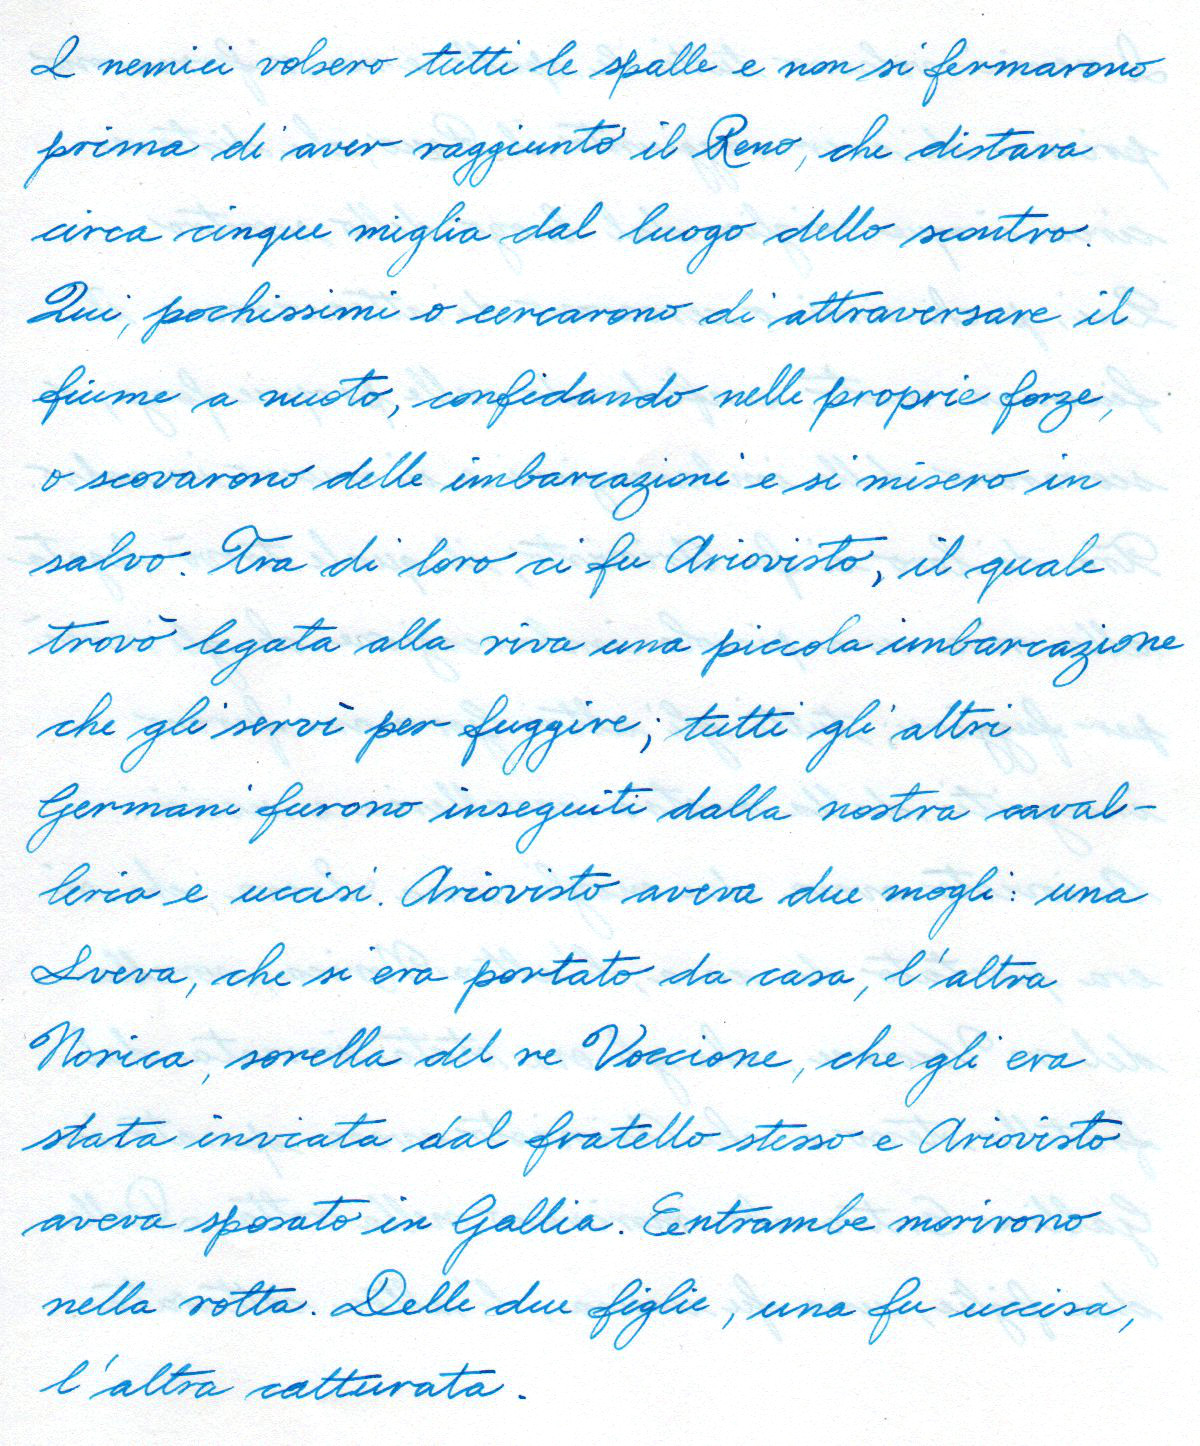 I nemici volsero tutti le spalle e non si fermarono
prima di aver raggiunto il Reno, che distava
circa cinque miglia dal luogo dello scontro.
Qui, pochissimi o cercarono di attraversare il
fiume a nuoto, confidando nelle proprie forze,
o scovarono delle imbarcazioni e si misero in
salvo. Tra di loro ci fu Ariovisto, il quale
trovò legata alla riva una piccola imbarcazione
che gli servì per fuggire; tutti gli altri
Germani furono inseguiti dalla nostra caval-
leria e uccisi. Ariovisto aveva due mogli: una
Sveva, che si era portato da casa, l'altra
Norica, sorella del re Voccione, che gli era
stata inviata dal fratello stesso e Ariovisto
aveva sposato in Gallia. Eentrambe morirono
nella rotta. Delle due figlie, una fu uccisa,
l'altra catturata.